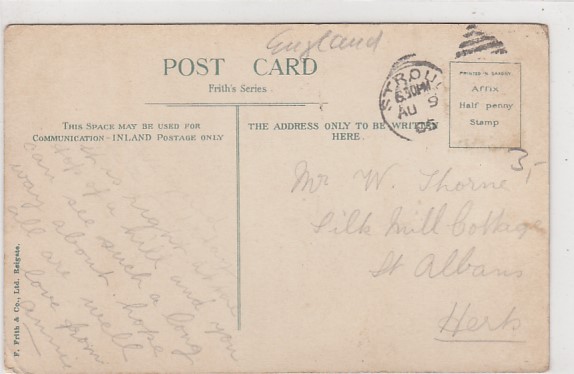 England
POST CARD
Frith's Series
PRINTED IN SAXONY
Affix
Half penny
Stamp
STROUD
6.30PM
AU 9
05
THIS SPACE MAY BE USED FOR
COMMUNICATION - INLAND POSTAGE ONLY
THE ADDRESS ONLY TO BE WRITTEN
HERE
3,-
this right at the
top of a hill and you
can see such a long
way about. hope
all are well
love from
Annie
Mr W. Thorne
Silk Mill Cottage
St Albans
Herts
F. Frith & Co., Ltd. Reigate.